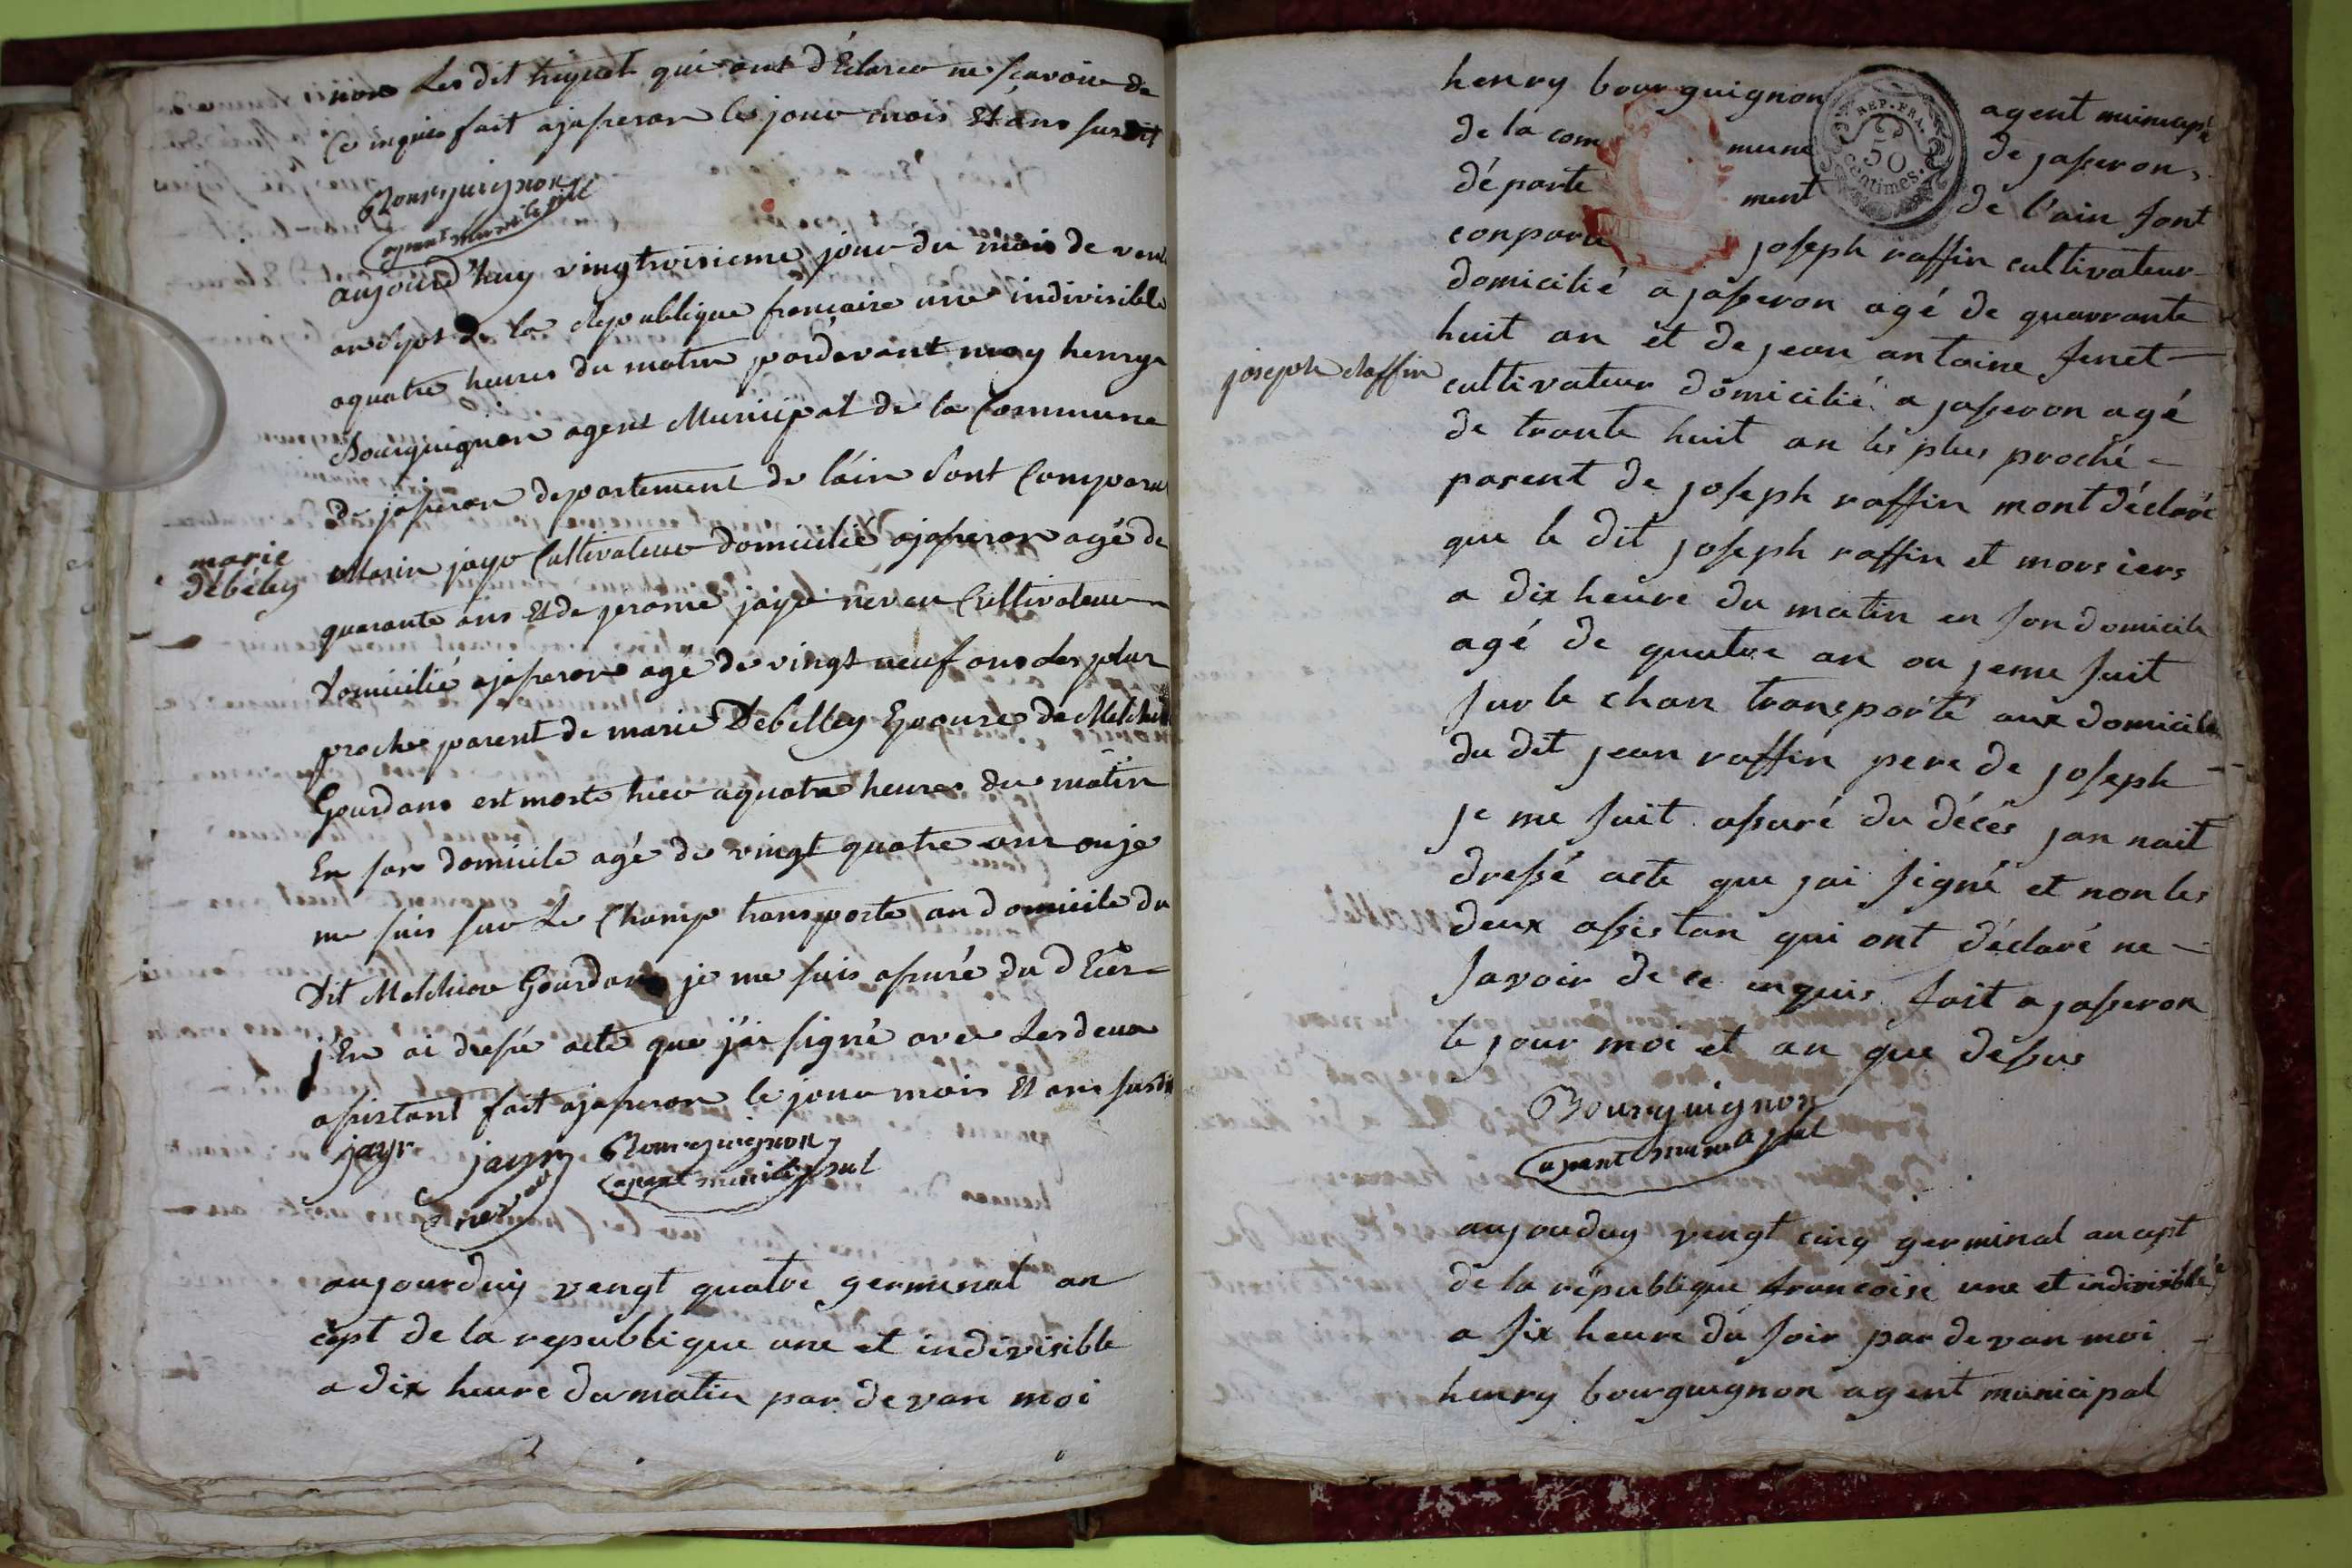 non Les dit huguet qui ont d'Eclarer ne scavoire de
Ce inquis fait ajasseron les jour mois Et ans susdit
Bourguignon
agent municipal
aujourd'huy vingtroisieme jour du mois de vent
an sept de la republique francaire une indivisible
aquatre heures du matin pardevant moy henry
Bourguignon agent Municipal de la Commune
de jasseron departement de l'ain sont Comparu
marie
débéley
Marin jayr Cultivateur domicilié ajasseron agé de
quarante ans Et de jerome jayr neveu Cultivateur
domicilié ajasseron agé de vingt neuf ans les plus
proche parent de marie Debelley Epouse de Melchior
Gourdans est morte hier aquatre heures du matin
En son domicile agé de vingt quatre ans ou je
me suis sur Le Champ transporte au domicile du
Dit Melchior Gourdan je me suis assuré du dEces
j'En ai dressé acte que j'ai signé avec Les deux
assistant fait ajasseron le jour mois Et ans susdit
jayr jayr Bourguignon
neveu agent municipal
aujourduy vengt quatre germinal an
cept de la republique une et indivisible
a dix heure du matin par devan moi
henry bourguignon agent municipal
de la commune de jasseron
département de l'ain sont
conparu joseph raffin cultivateur
domicilié a jasseron agé de quarrante
huit an et de jean antoine fenet
joseph Raffin
cultivateur domicilié a jasseron agé
de trante huit an les plus proché
parent de joseph raffin mont déclaré
que le dit joseph raffin et mors iers
a dix heure du matin en son domicile
agé de quatre an ou jeme suit
sur le chan transporté aux domicile
du dit jean raffin pere de joseph
je me suit assuré du décés jan nait
dressé acte que jai signé et non les
deux assistan qui ont déclaré ne
savoir de ce enquis fait a jasseron
le jour moi et an que dessus
Bourguignon
agent municipal
aujouduy vengt cinq germinal an cept
de la république francoise une et indivisible
a six heure du soir par devan moi
henry bourguignon agent municipal
REP. FRA.
50
centimes.